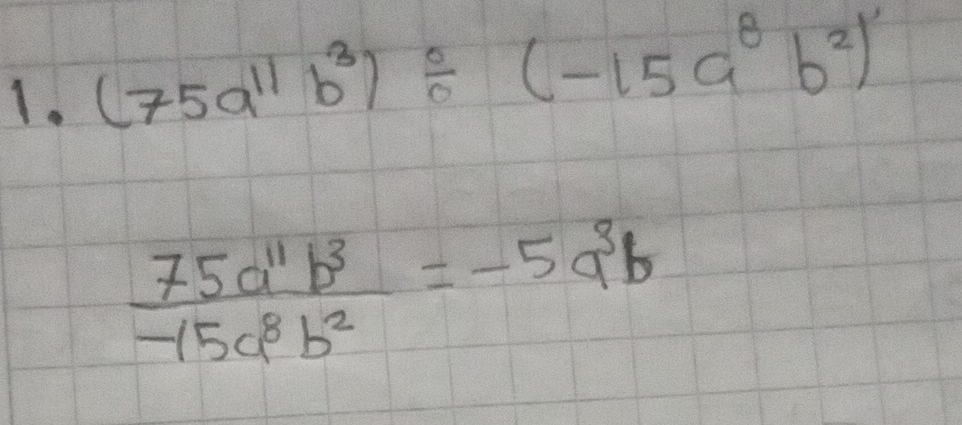 1. (75a¹¹ b³) ÷ (-15a⁸ b²)
75a¹¹ b³ = -5a³b
-15a⁸ b²